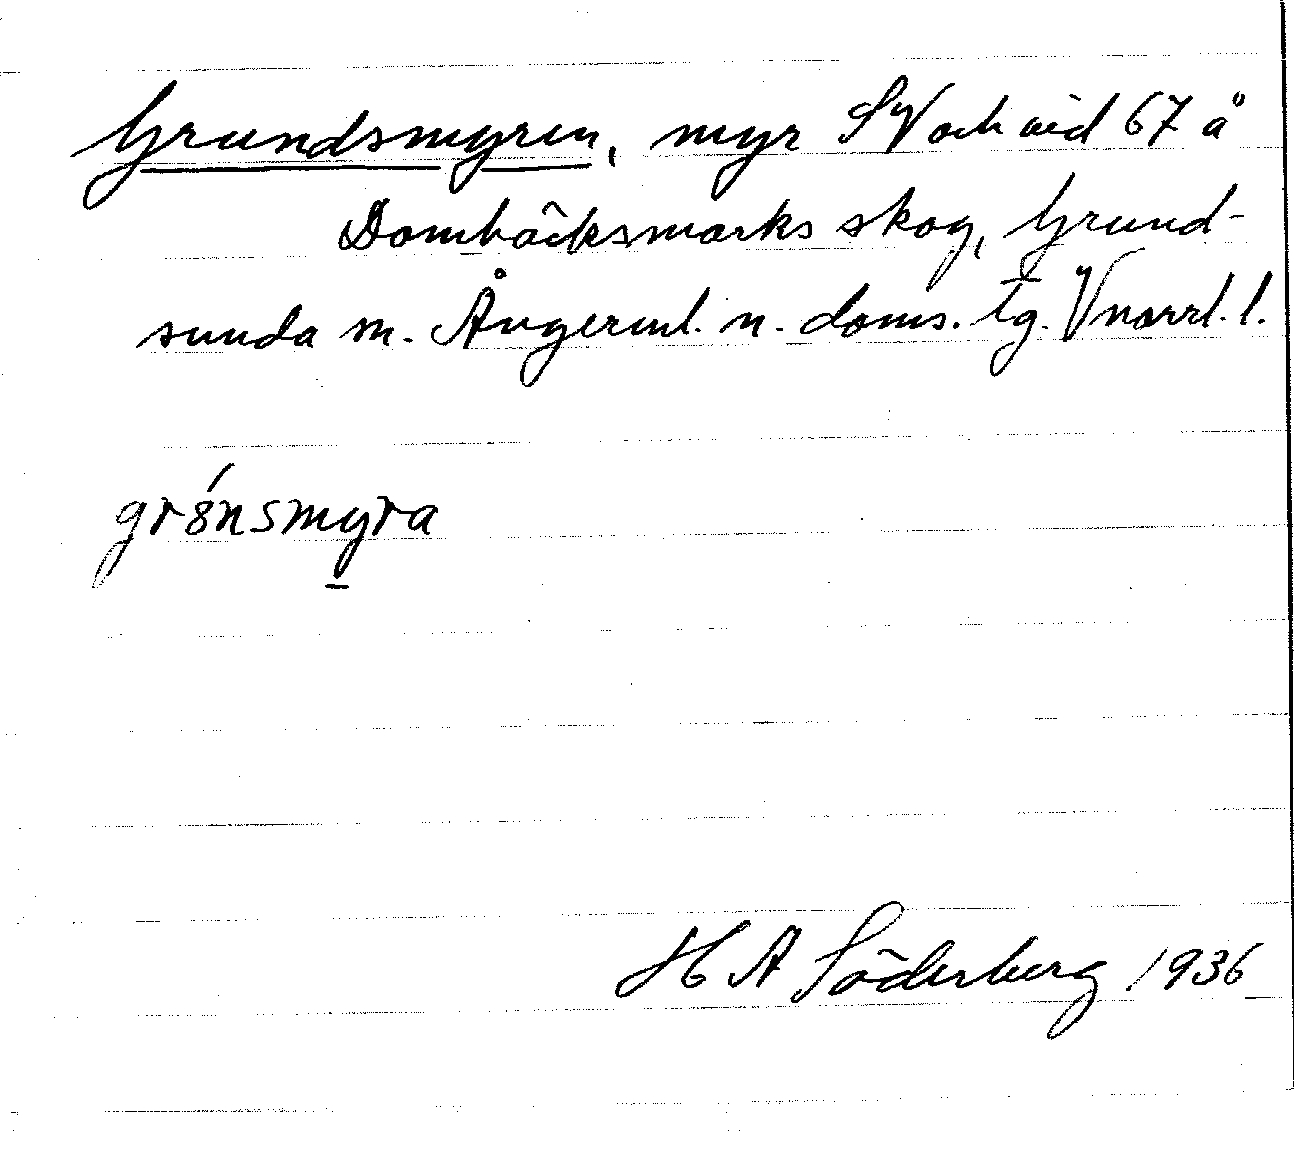 Grundsmyren, myr SV och vid 67 å
Dombäcksmarks skog, Grund-
sunda sn. Ångerml. n. doms. tg. Vnorrl. l.
grŏ́nsmyra
H A Söderberg 1936